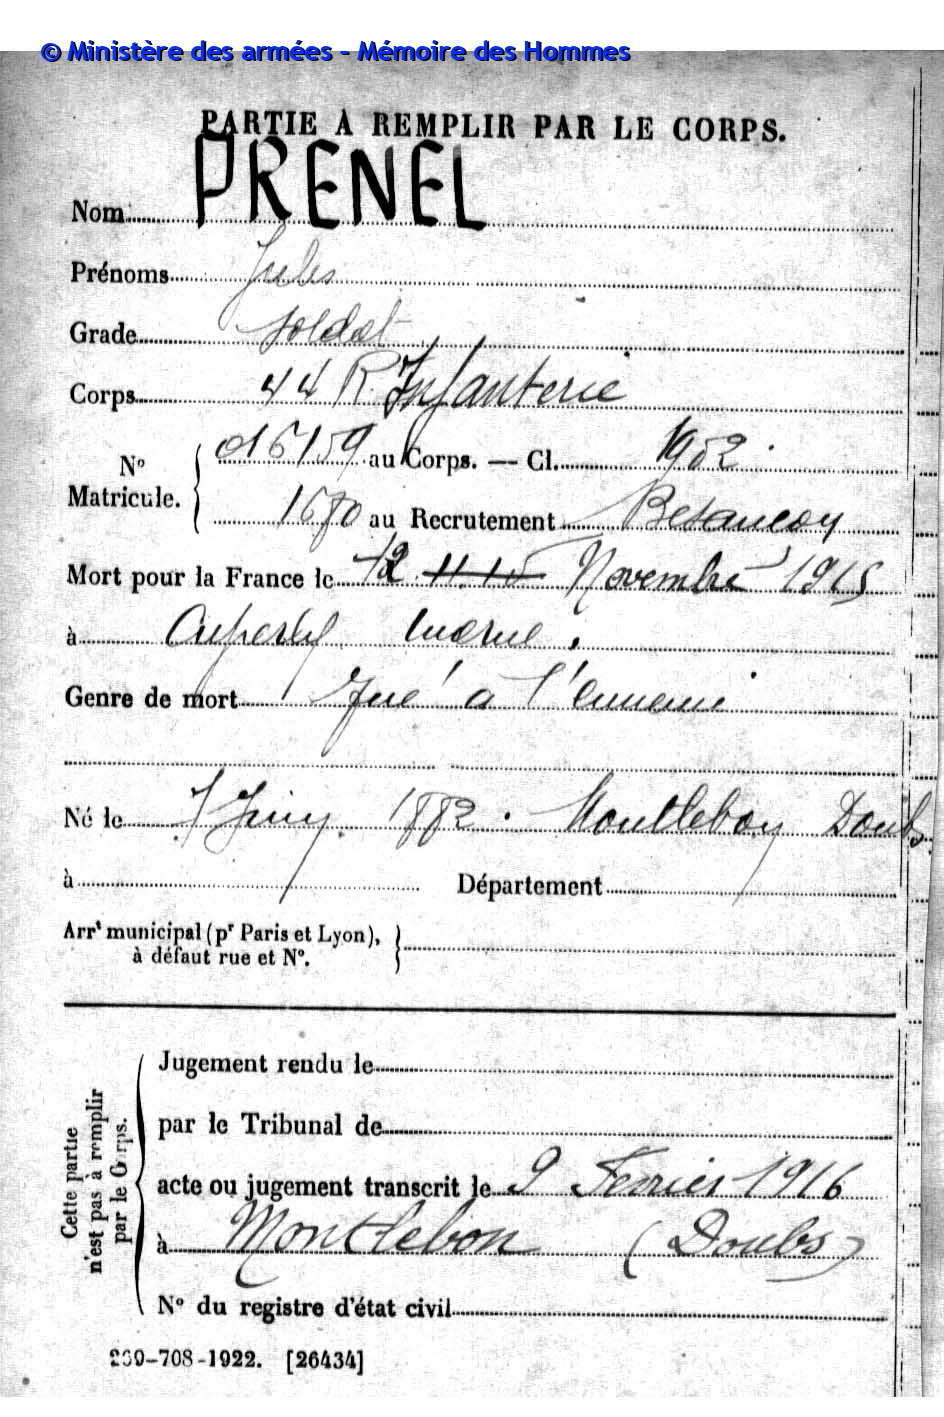 © Ministère des armées - Mémoire des Hommes
PARTIE À REMPLIR PAR LE CORPS.
Nom PRENEL
Prénoms Jules
Grade soldat
Corps 44 R Infanterie
N° Matricule. 016159 au Corps. — Cl. 1902
1680 au Recrutement Besançon
Mort pour la France le 12 11 15 Novembre 1915
à Cuperly Marne
Genre de mort Tué à l'ennemi
Né le 7 1882. Montlebon Doubs.
à Département
Arrt municipal (pr Paris et Lyon),
à défaut rue et N°.
Cette partie n'est pas à remplir par le Corps.
Jugement rendu le
par le Tribunal de
acte ou jugement transcrit le 9 Fevrier 1916
à Montlebon (Doubs)
N° du registre d'état civil
-708-1922. [26434]